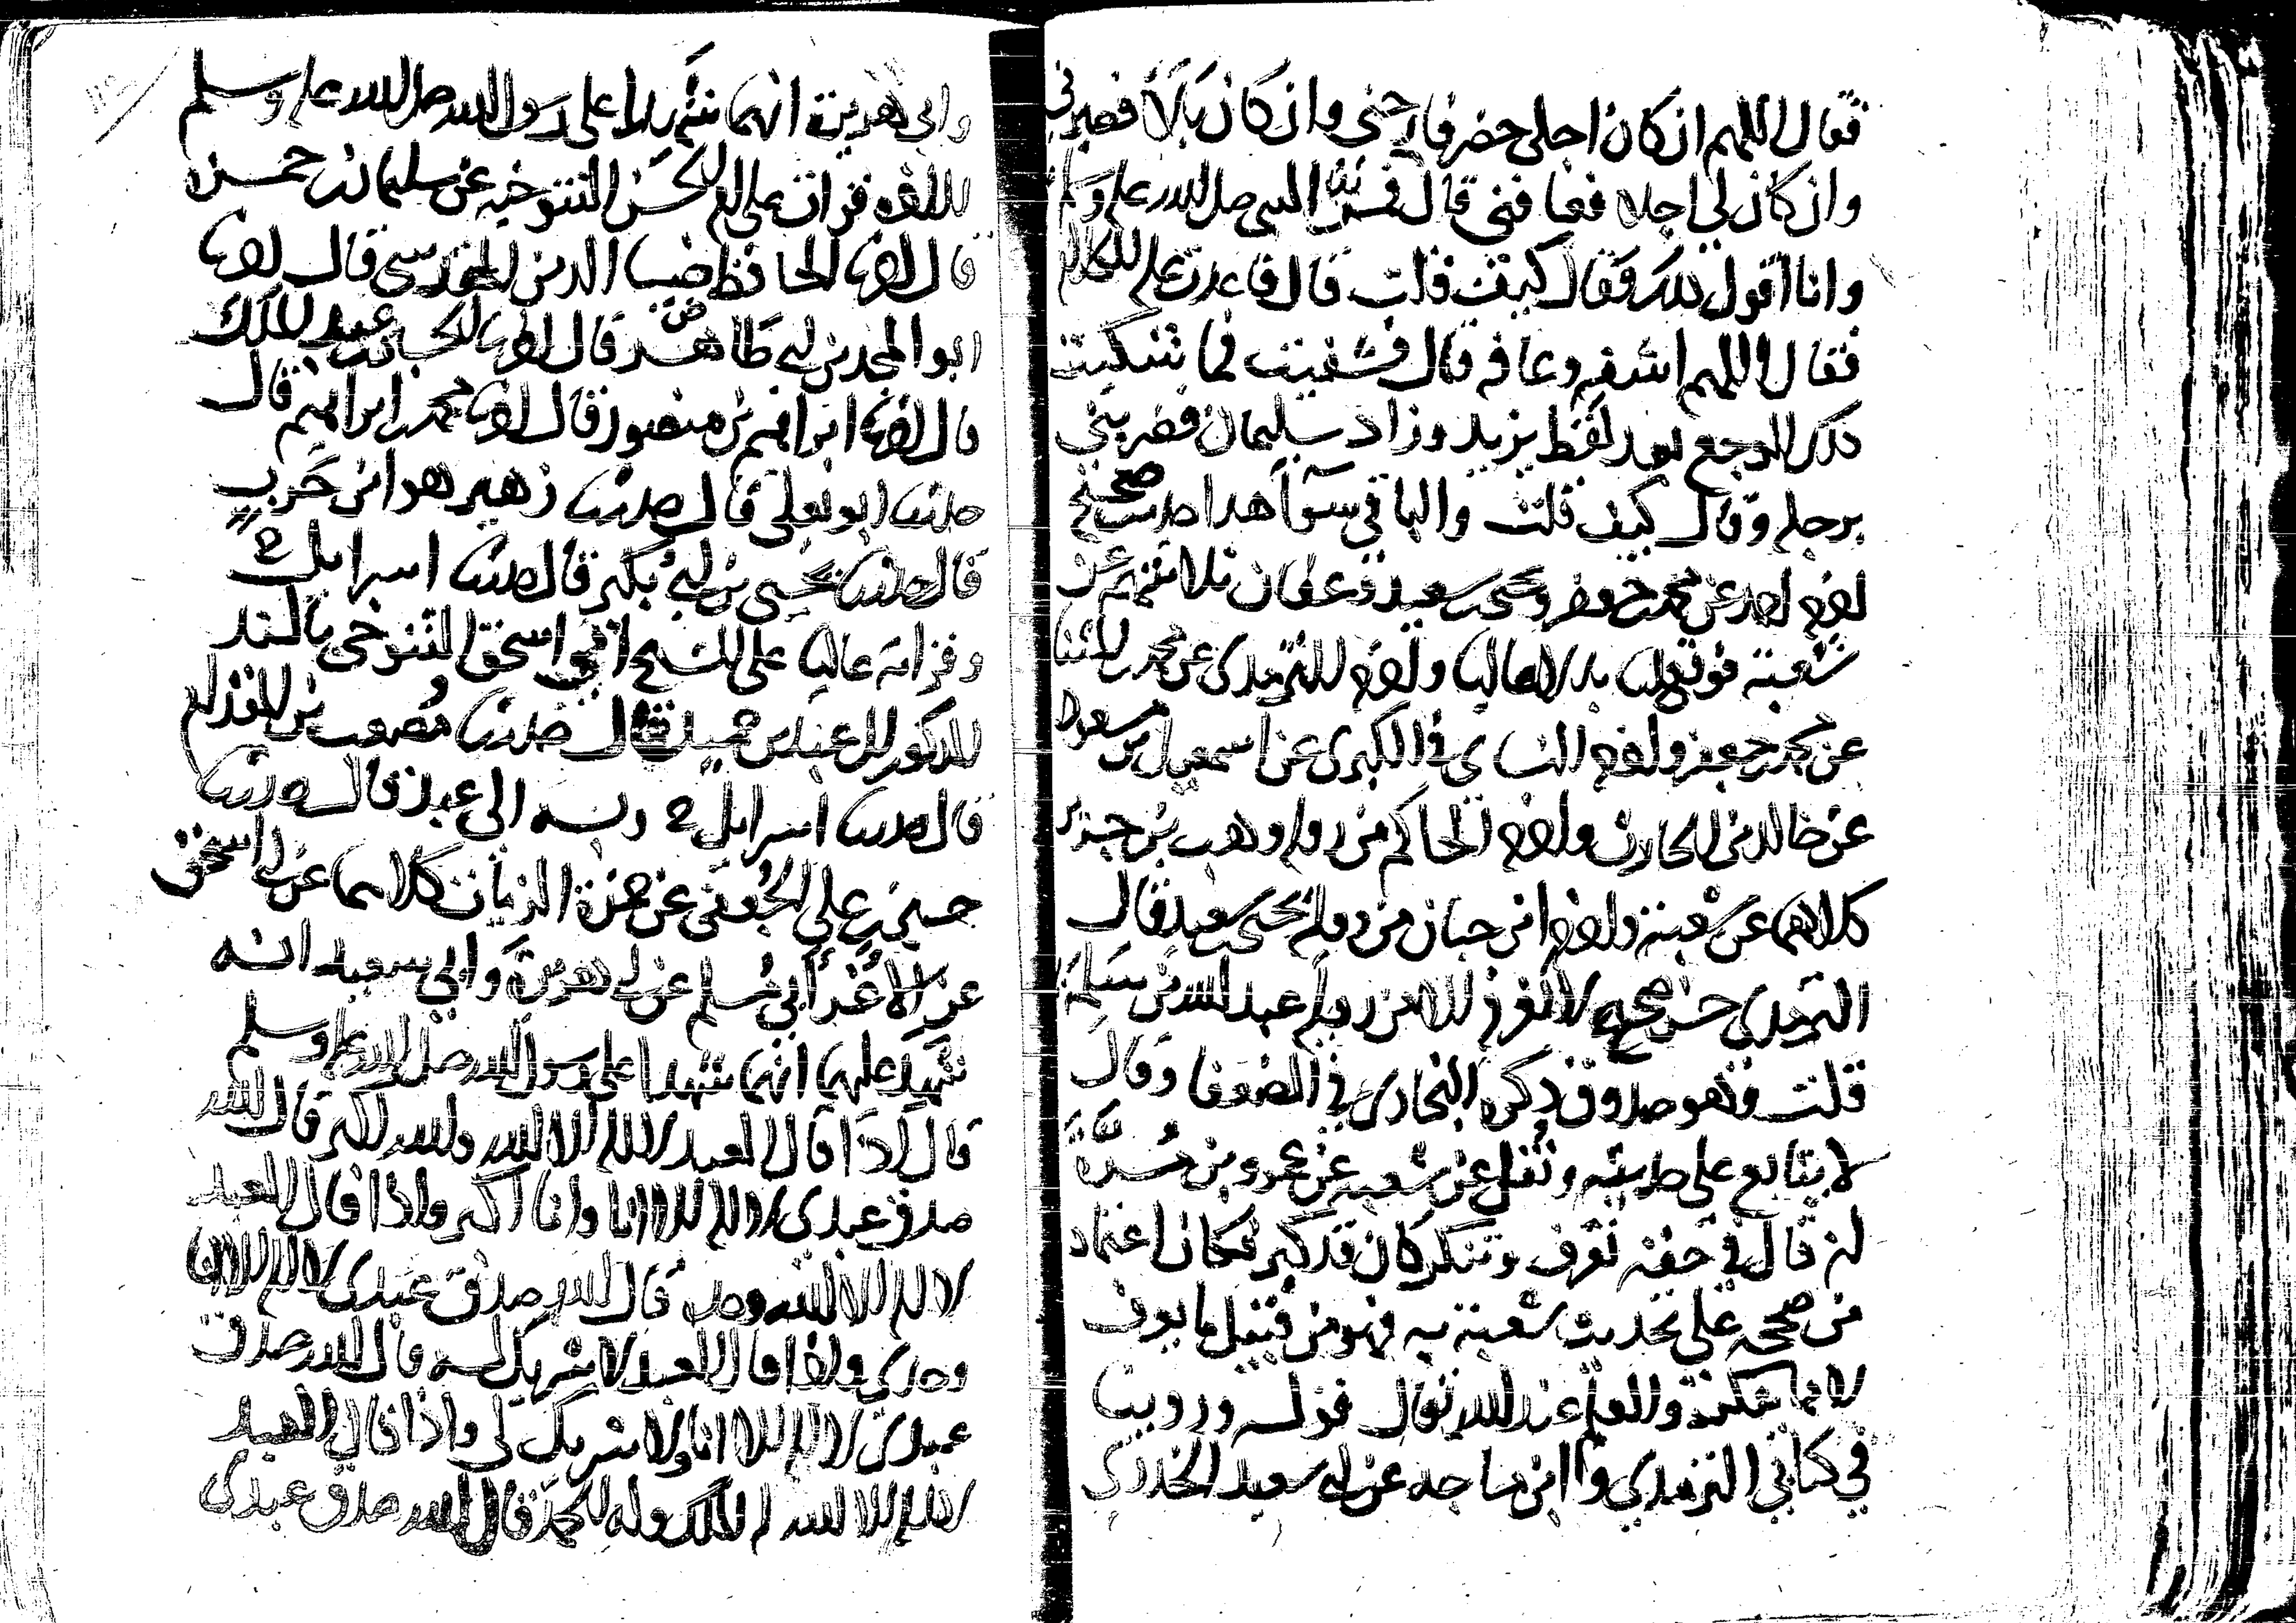 فقال اللهم ان كان اجلي حضر فارحني وان كان بلاء فصبرني
وان كان لي اجلا فعافني قال فمر بي النبي صلى الله عليه وسلم
وانا اقول ذلك فقال كيف قلت قال فاعدت عليه الكلام
فقال اللهم اشفه وعافه قال فشفيت فما شكيت
ذلك الوجع بعد لفظ يزيد وزاد سليمان فضربني
برجله وقال كيف قلت والباقي سوآ هذا حديث صحيح
اخرجه احمد عن محمد بن جعفر ويحيى بن سعيد وعفان ثلاثتهم عن
شعبة فوقع لنا بدلا عاليا واخرجه الترمذي عن محمد بن المثنى
عن محمد بن جعفر واخرجه النساي في الكبرى عن اسمعيل بن مسعود
عن خالد بن الحارث واخرجه الحاكم من رواية وهب بن جرير
كلاهما عن شعبة واخرجه ابن حبان من رواية يحيى بن سعيد قال
الترمذي حسن صحيح لا نعرفه الا من رواية عبد الله بن سلمة
قلت وهو صدوق ذكره البخاري في الضعفا وقال
لا يتابع على حديثه ونقل عن شعبة عن عمرو بن مرة
انه قال في حقه نعرف وننكر كان قد كبر فكان اعتماد
من صححه على تحديث شعبة به فهو من قبيل ما يعرف
لا ما ينكر والعلم عند الله تعالى قوله وروينا
في كتابي الترمذي وابن ماجه عن ابي سعيد الخدري
وابي هريرة انهما شهدا على رسول الله صلى الله عليه وسلم
قرات على ام الحسن التنوخية عن سليمان بن حمزة
قال اخبرنا الحافظ ضيا الدين المقدسي قال اخبرنا
ابو المجد بن ابي طاهر قال اخبرنا الحسين بن عبد الملك
قال اخبرنا ابراهيم بن منصور قال اخبرنا محمد بن ابراهيم قال
حدثنا ابو يعلى قال حدثنا زهير هو ابن حرب
قال حدثنا يحيى بن ابي بكير قال حدثنا اسرايل ح
وقراته عاليا على الشيخ ابي اسحق التنوخي بالسند
المذكور الى عبد بن حميد قال حدثنا مصعب بن المقدام
قال حدثنا اسرايل ح وبه الى عبد قال حدثنا
حسين بن علي الجعفي عن حمزة الزيات كلاهما عن ابي اسحق
عن الاغر ابي مسلم عن ابي هريرة وابي سعيد انه
شهد عليهما انهما شهدا على رسول الله صلى الله عليه وسلم
قال اذا قال العبد لا اله الا الله والله اكبر قال الله
صدق عبدي لا اله الا انا وانا اكبر واذا قال العبد
لا اله الا الله وحده قال الله صدق عبدي لا اله الا انا
وحدي واذا قال العبد لا شريك له قال الله صدق
عبدي لا اله الا انا ولا شريك لي واذا قال العبد
لا اله الا الله له الملك وله الحمد قال الله صدق عبدي